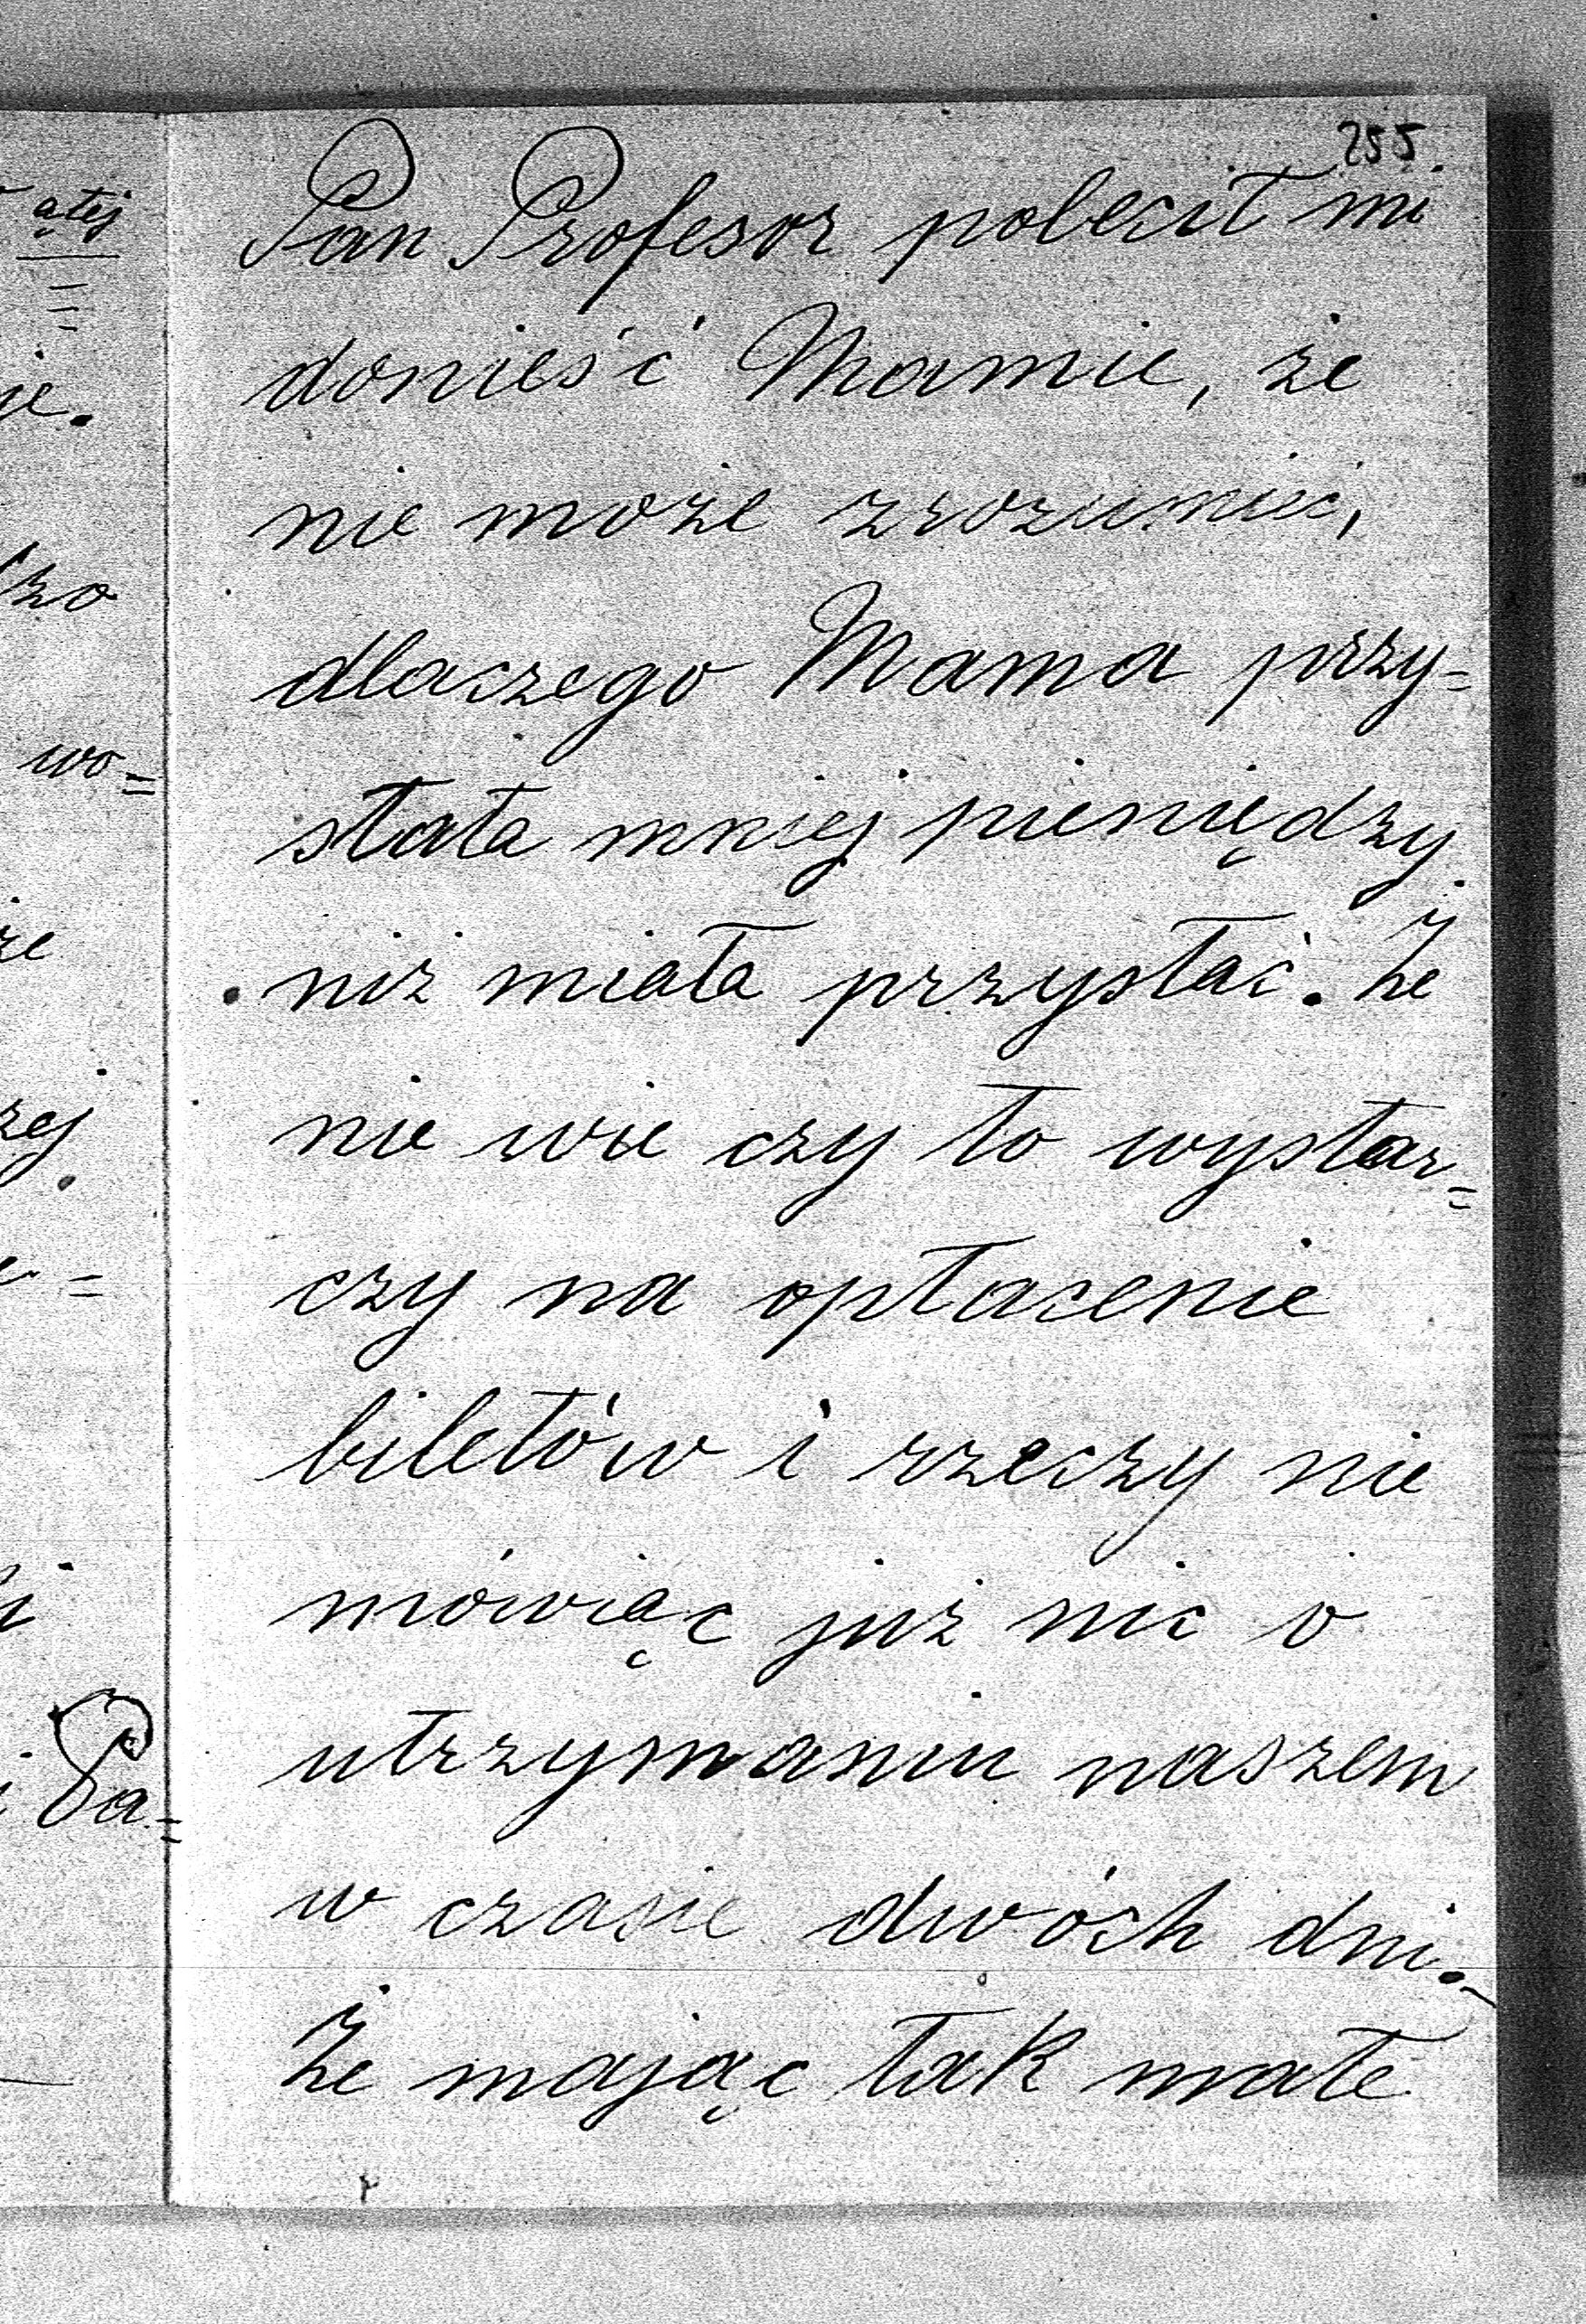 255
Pan Profesor polecił mi
donieść Mamie, że
nie może zrozumieć,
dlaczego Mama przy=
słała mniej pieniędzy
niż miała przysłać. Że
nie wie czy to wystar=
czy na opłacenie
biletów i rzeczy nie
mówiąc już nic o
utrzymaniu naszem
w czasie dwóch dni.
Że mając tak małe
atej
wo=
Pa=